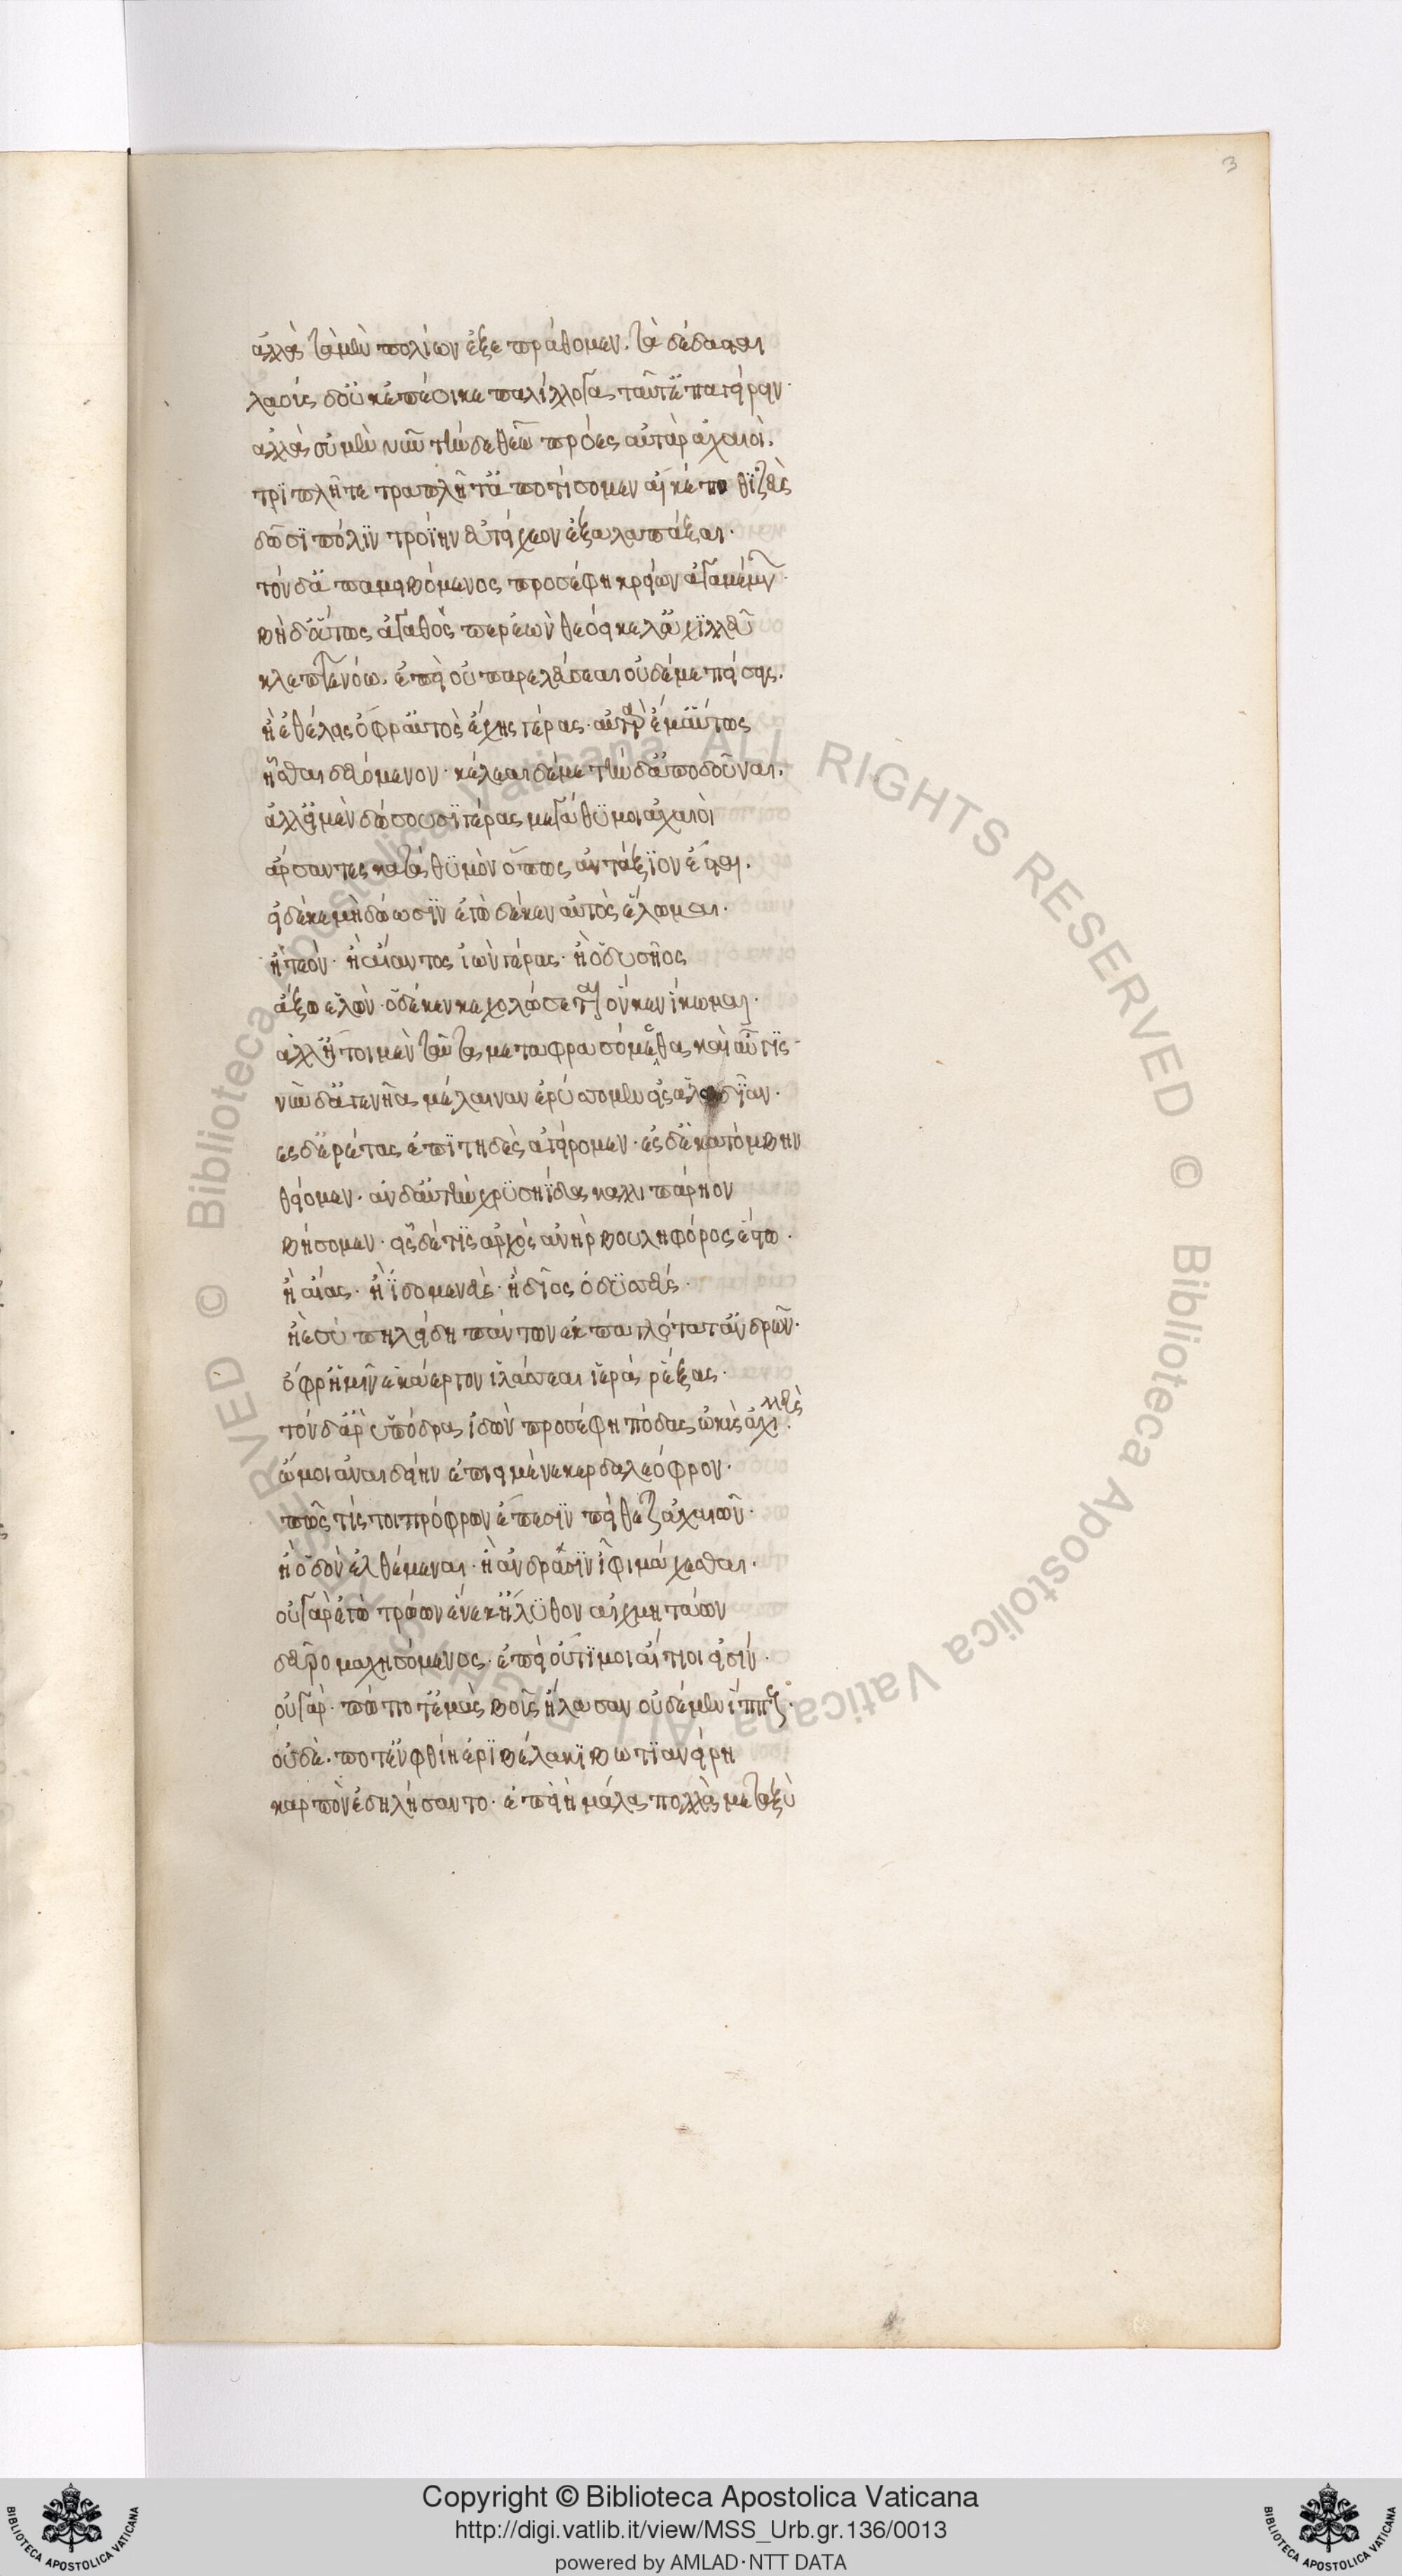 3
ἀλλὰ τὰ μὲν πολίων ἐξεπράθομεν. τὰ δέδασται
λαοὺς δ' οὐκ ἐπέοικε παλίλλογα ταῦτ' ἐπαγείρειν·
ἀλλὰ σὺ μὲν νῦν τήνδε θεῶ πρόες αὐτὰρ ἀχαιοὶ.
τριπλῆ τετραπλῆ τ' ἀποτίσομεν αἴ κέ ποθι ζεὺς
δῶσι πόλιν τροίην εὐτείχεον ἐξαλαπάξαι·
τὸν δ' ἀπαμειβόμενος προσέφη κρείων ἀγαμέμνων·
μὴ δ' αὕτως ἀγαθός περ ἐὼν θεοείκελ' ἀχιλλεῦ
κλέπτε νόω. ἐπεὶ οὐ παρελεύσεαι οὐδέ με πείσεις.
ἢ ἐθέλεις ὄφρ' αὐτὸς ἔχης γέρας· αὐτὰρ ἔμ' αὕτως
ἧσθαι δευόμενον· κέλεαι δέ με τήνδ' ἀποδοῦναι.
ἀλλ' εἰ μὲν δώσουσι γέρας μεγάθυμοι ἀχαιοὶ
ἄρσαντες κατὰ θυμὸν ὅπως ἀντάξιον ἔσται.
εἰ δέ κε μὴ δώωσιν ἐγὼ δέ κεν αὐτὸς ἕλωμαι·
ἢ τεὸν· ἢ αἴαντος ἰὼν γέρας· ἢ ὀδυσῆος
ἄξω ἑλὼν· ὁ δέ κεν κεχολώσεται ὅν κεν ἵκωμαι·
ἀλλ' ἤτοι μὲν ταῦτα μεταφρασόμεσθα καὶ αὖτις
νῦν δ' ἄγε νῆα μέλαιναν ἐρύσομεν εἰς ἅλα δῖαν·
ες δ' ἐρέτας ἐπιτηδὲς ἀγείρομεν· ἐς δ' ἑκατόμβην
θείομεν· ἂν δ' αὐτὴν χρυσηίδα καλλιπάρηον
βήσομεν· εἷς δέ τις ἀρχὸς ἀνὴρ βουληφόρος ἔστω·
ἢ αἴας· ἢ ἰδομενεὺς· ἢ δῖος ὀδυσσεύς·
ἠὲ σὺ πηλείδη πάντων ἐκπαγλότατ' ἀνδρῶν·
ὄφρ' ἥμιν ἑκάεργον ἱλάσσεαι ἱερὰ ῥέξας·
τὸν δ' ἄρ' ὑπόδρα ἰδὼν προσέφη πόδας ὠκὺς ἀχιλλεὺς·
ὤ μοι ἀναιδείην ἐπιειμένε κερδαλεόφρον·
πῶς τίς τοι πρόφρων ἔπεσιν πείθεται ἀχαιῶν·
ἢ ὁδὸν ἐλθέμεναι· ἢ ἀνδράσιν ἶφι μάχεσθαι·
οὐ γὰρ ἐγὼ τρώων ἕνεκ' ἤλυθον αἰχμητάων
δεῦρο μαχησόμενος· ἐπεὶ οὔτι μοι αἴτιοι εἰσίν·
οὐ γὰρ· πώποτ' ἐμὰς βοῦς ἤλασαν οὐδὲ μὲν ἵππους·
οὐδὲ· ποτ' ἐν φθίη ἐριβώλακι βωτιανείρη
καρπὸν ἐδηλήσαντο· ἐπειὴ μάλα πολλὰ μεταξὺ
Copyright © Biblioteca Apostolica Vaticana
http://digi.vatlib.it/view/MSS_Urb.gr.136/0013
powered by AMLAD·NTT DATA